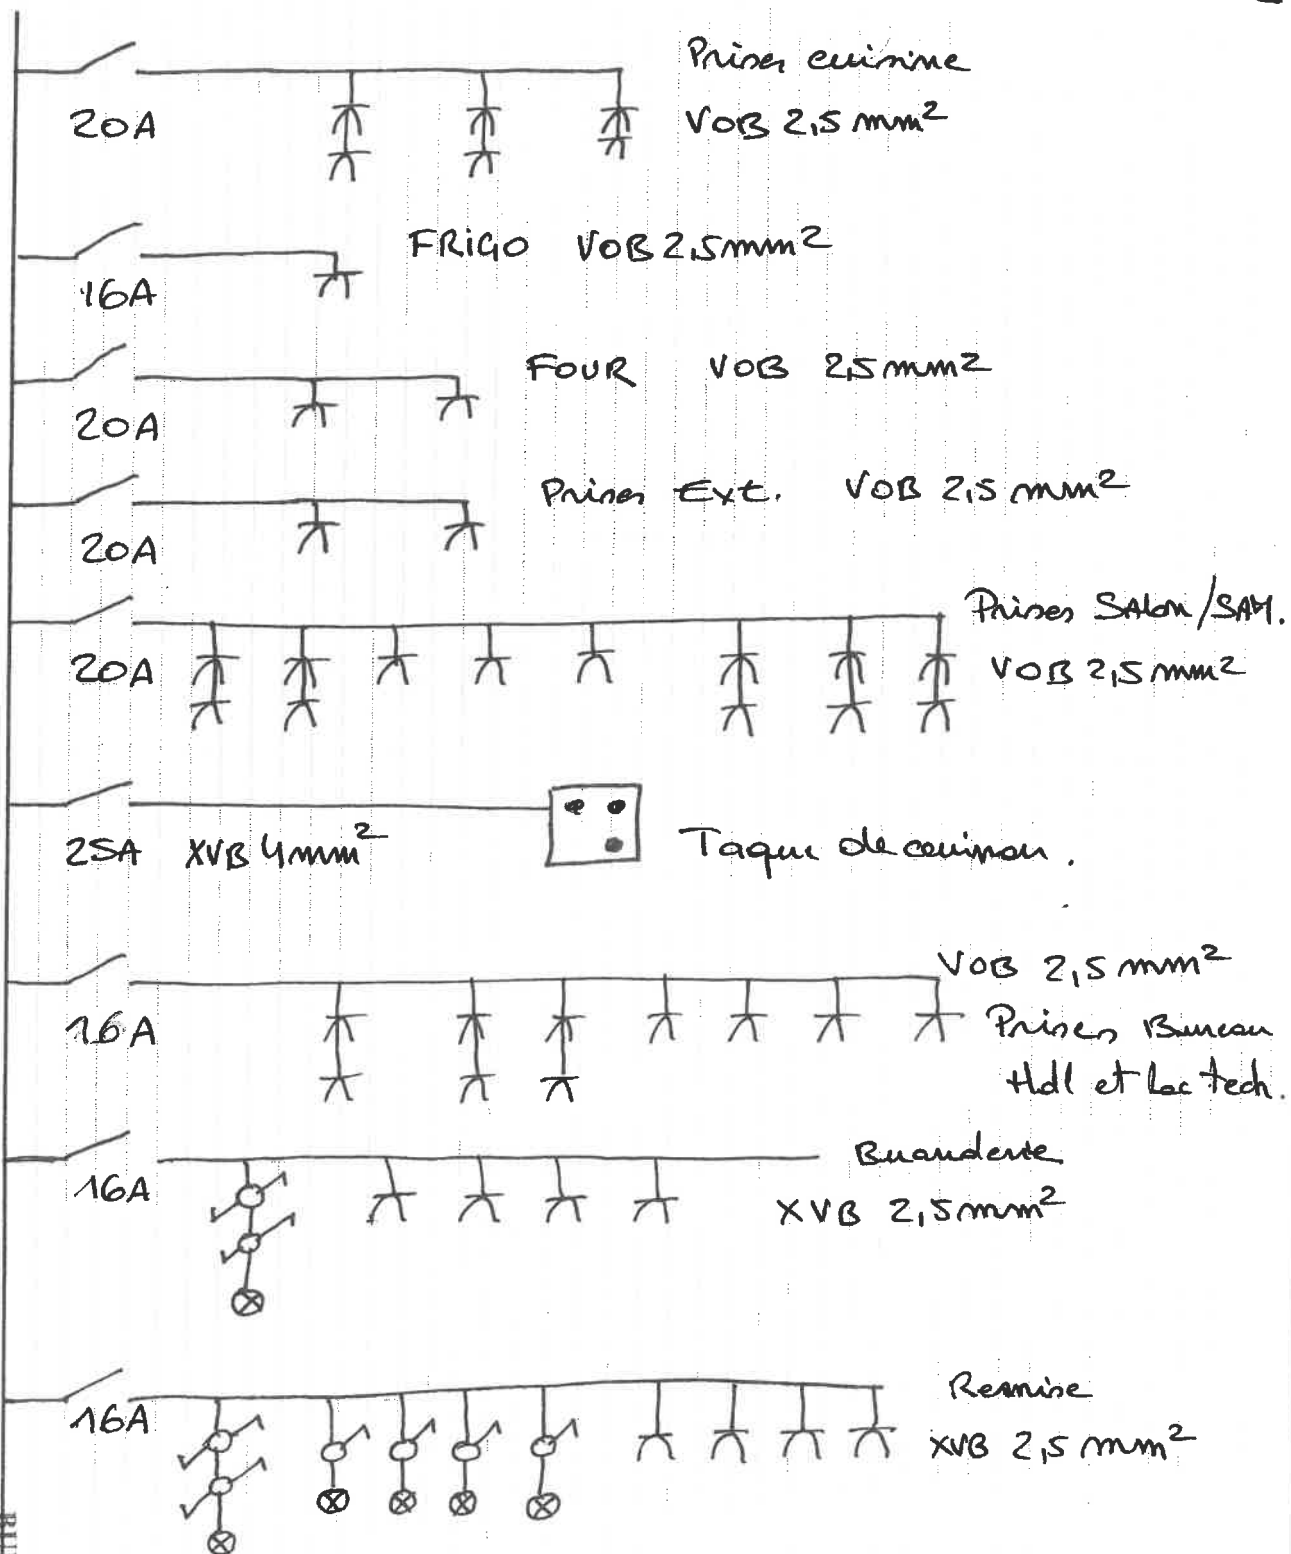 Prises cuisine
20A VOB 2,5 mm²
FRIGO VOB 2,5mm²
16A
FOUR VOB 2,5 mm²
20A
Prises Ext. VOB 2,5 mm²
20A
Prises SAlon/SAM.
20A VOB 2,5 mm²
25A XVB 4mm² Taque de cuisson.
VOB 2,5 mm²
16A Prises Bureau
Hdl et Loc tech.
Buanderie
16A XVB 2,5mm²
Remise
16A XVB 2,5 mm²